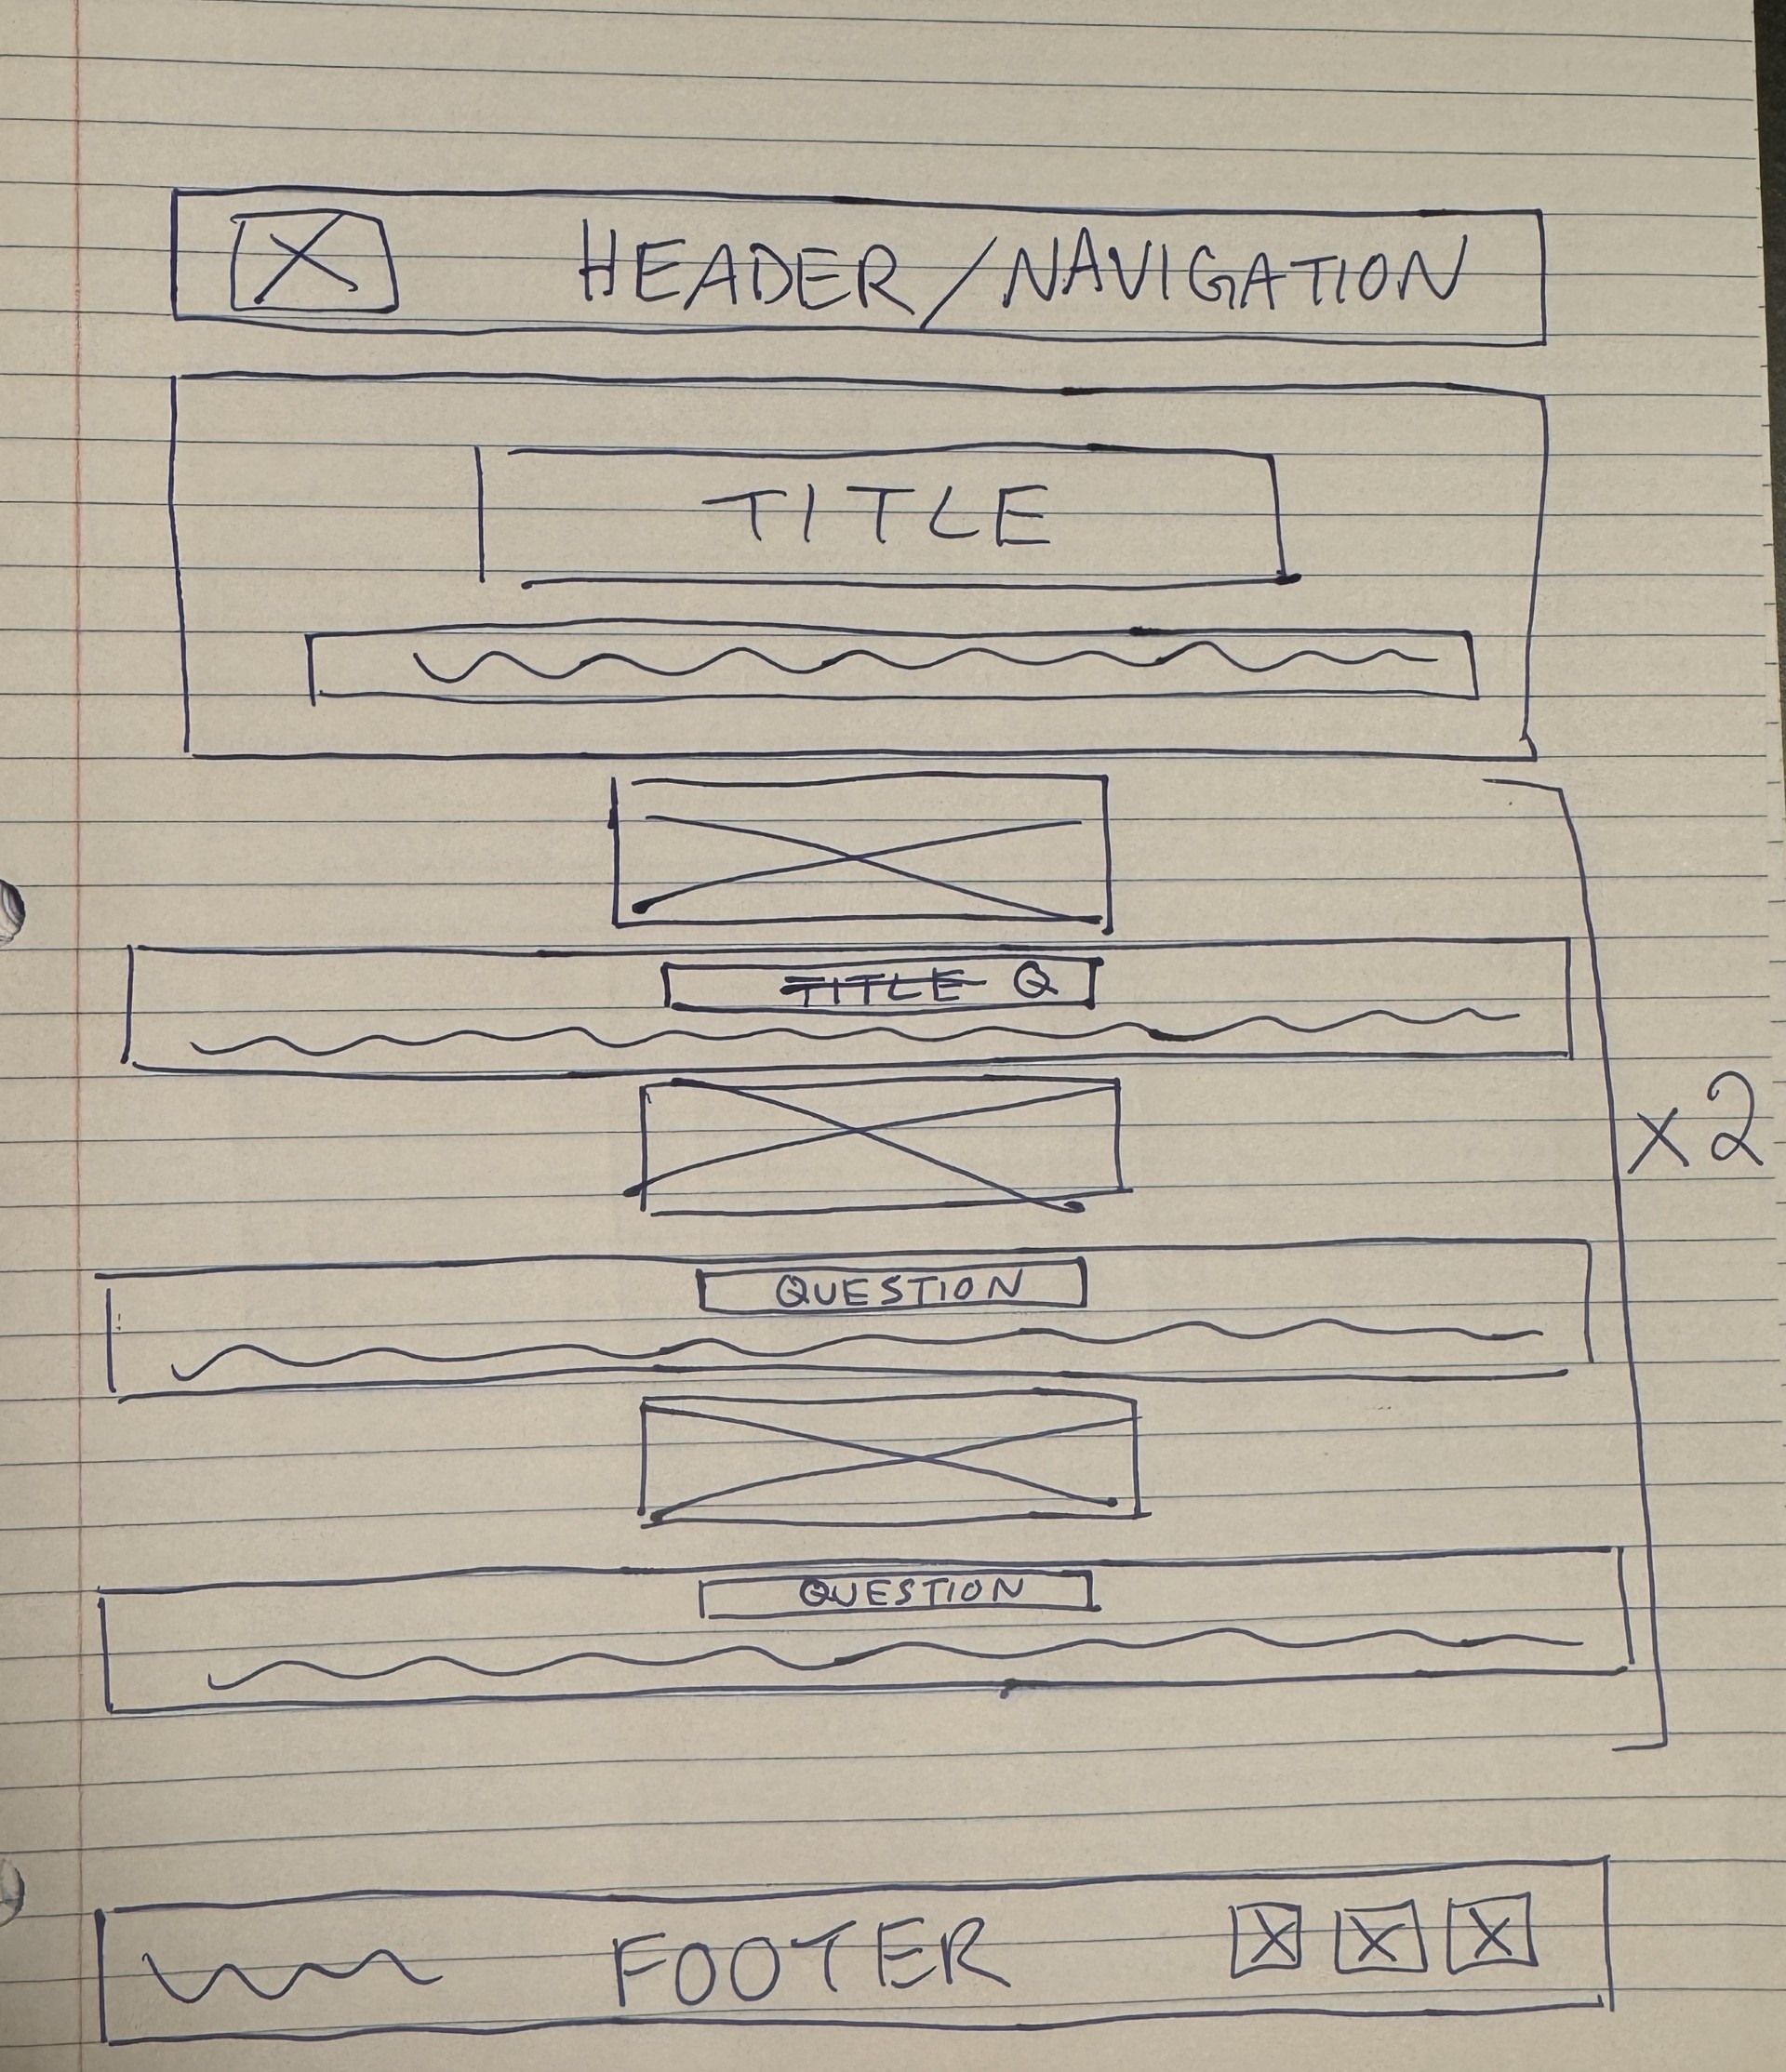 HEADER/NAVIGATION
TITLE
TITLE Q
x2
QUESTION
QUESTION
FOOTER